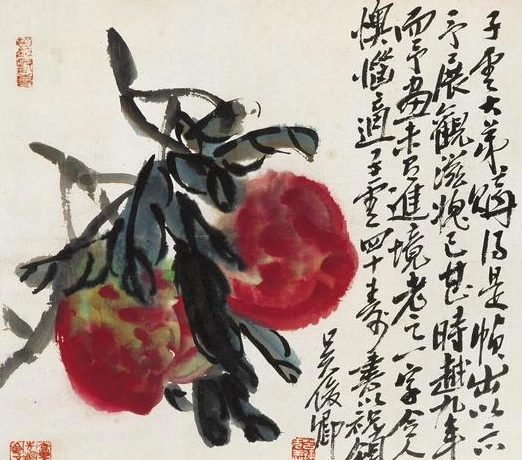 子雲大弟購得是幀出以示
予展觀滋愧已甚時越九年
而予畫未進境老之一字令人
懊惱適子雲四十壽書以祝頌
吳俊卿